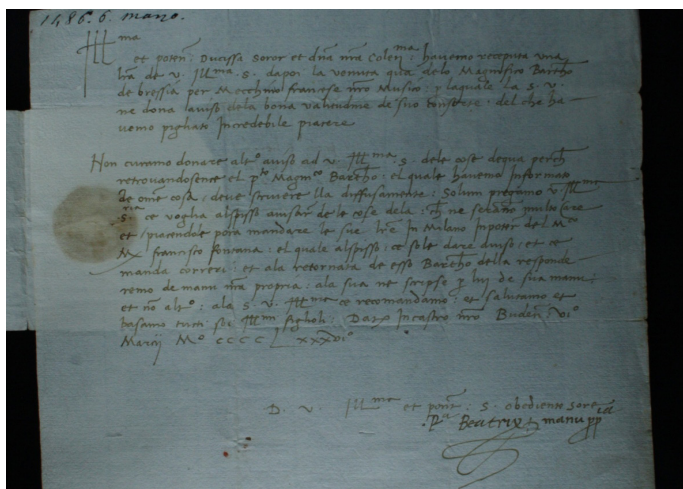 1486. 6. marzo.
Ill ma
et poten: Ducissa soror et dna nra Colen ma: havemo receputa una
lra de v. Ill ma. S. dapoi la venuta qua delo Magnifico Bartho
de bressia per Mecchino francese nro Musico: p laquale la S. v.
ne dona aviso dela bona valitudine de suo essere. del che ha
vemo pigliato Incredibile piacere
Non curamo donare alt o aviso ad v. Ill ma S. dele cose dequa perch
retrovandosence el p to Magm co Bartho: el quale havemo Informato
de omne cosa: deve scrivere lla diffusamente: Solum pregamo v Ill me
S. ce voglia alspisso avisar de le cose dela: ch ne serano multo care
et piacendole pora mandare le sue lre In Milano Inpoter del M co
Mx francisco fontana: el quale alspisso: ce sole dare aviso: et ce
manda correri: et ala retornata de esso Bartho della responde
remo de manu nra propria: ala sua ne scripse p lui de sua manu:
et no alt o: ala S. v. Ill me ce recomandamo: et salutamo et
basamo tutti soi Ill mi figlioli: Dat Incastro nro Buden vi o
Marcij M o cccc Lxxxvi o
D. v. Ill me et pont: S. obediente soror
Beatrix manu pp